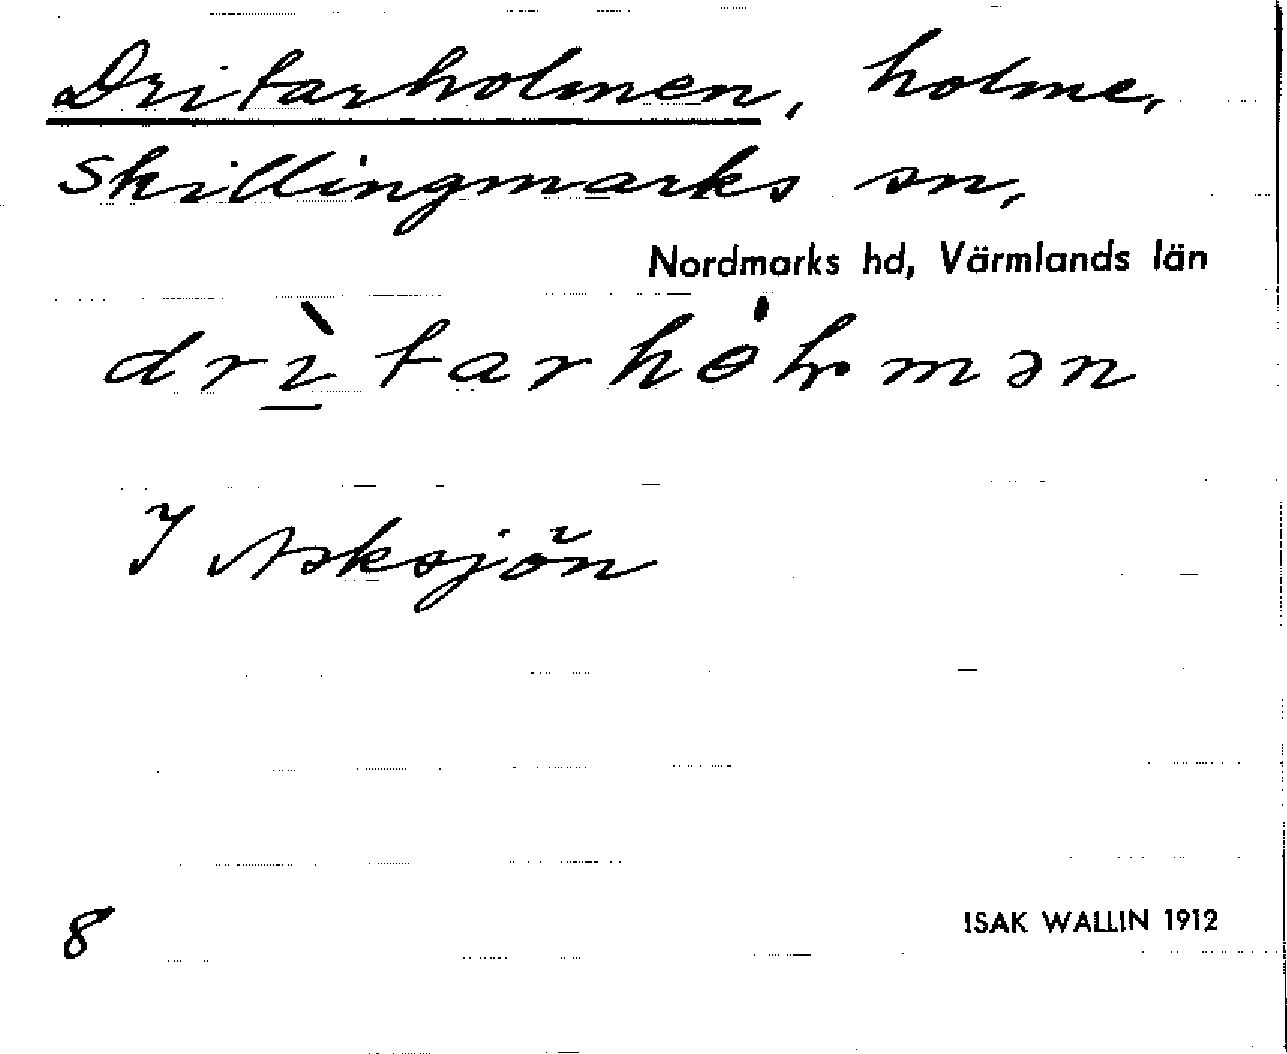 Dritarholmen, holme,
Skillingmarks sn,
Nordmarks hd, Värmlands län
drı̱̀tarhólmən
I Asksjön
8
ISAK WALLIN 1912